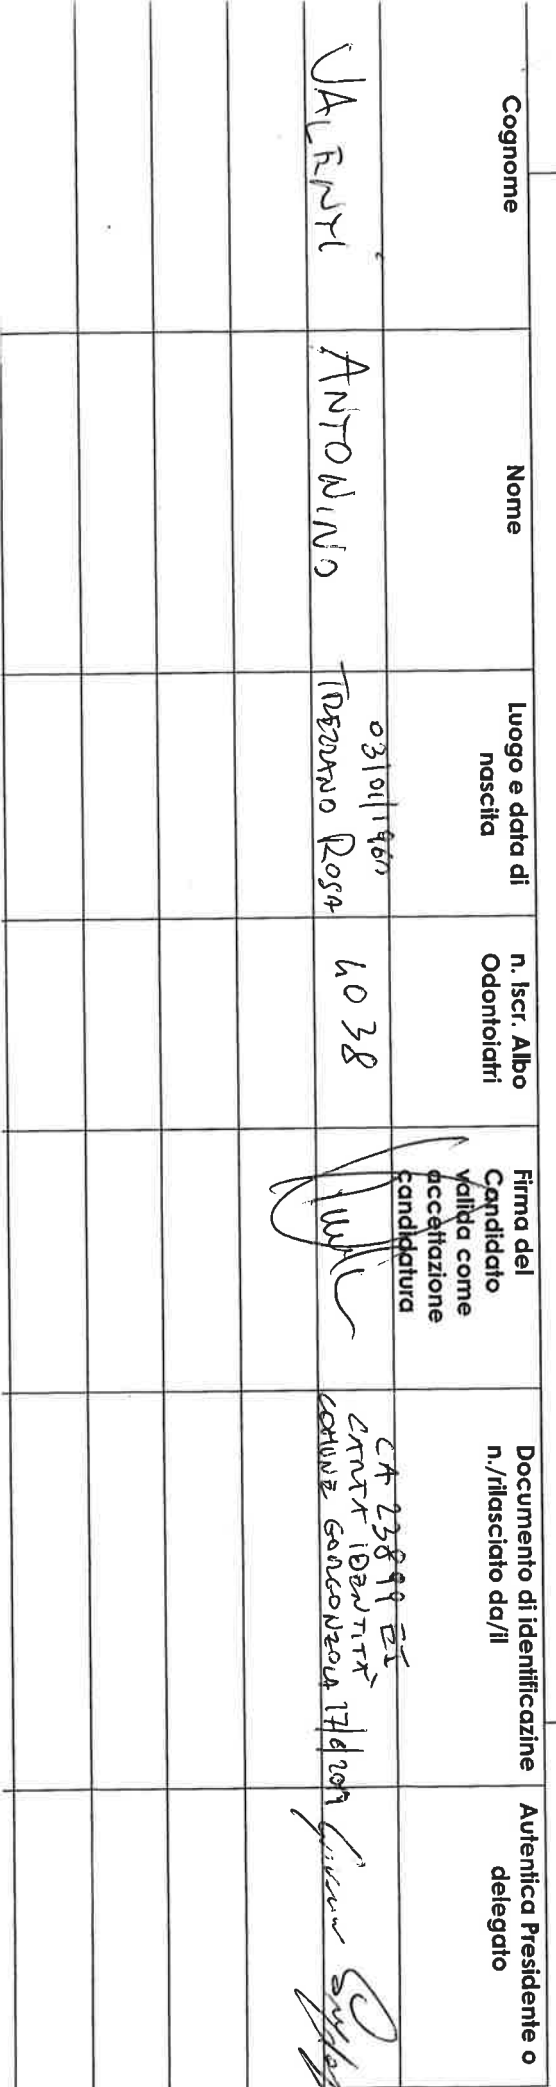 Cognome
Nome
Luogo e data di
nascita
n. Iscr. Albo
Odontoiatri
Firma del
Candidato
valida come
accettazione
candidatura
Documento di identificazine
n./rilasciato da/il
Autentica Presidente o
delegato
VALENTI
ANTONINO
03/01/1960
TREZZANO ROSA
4038
CARTA IDENTITÀ
COMUNE GORGONZOLA